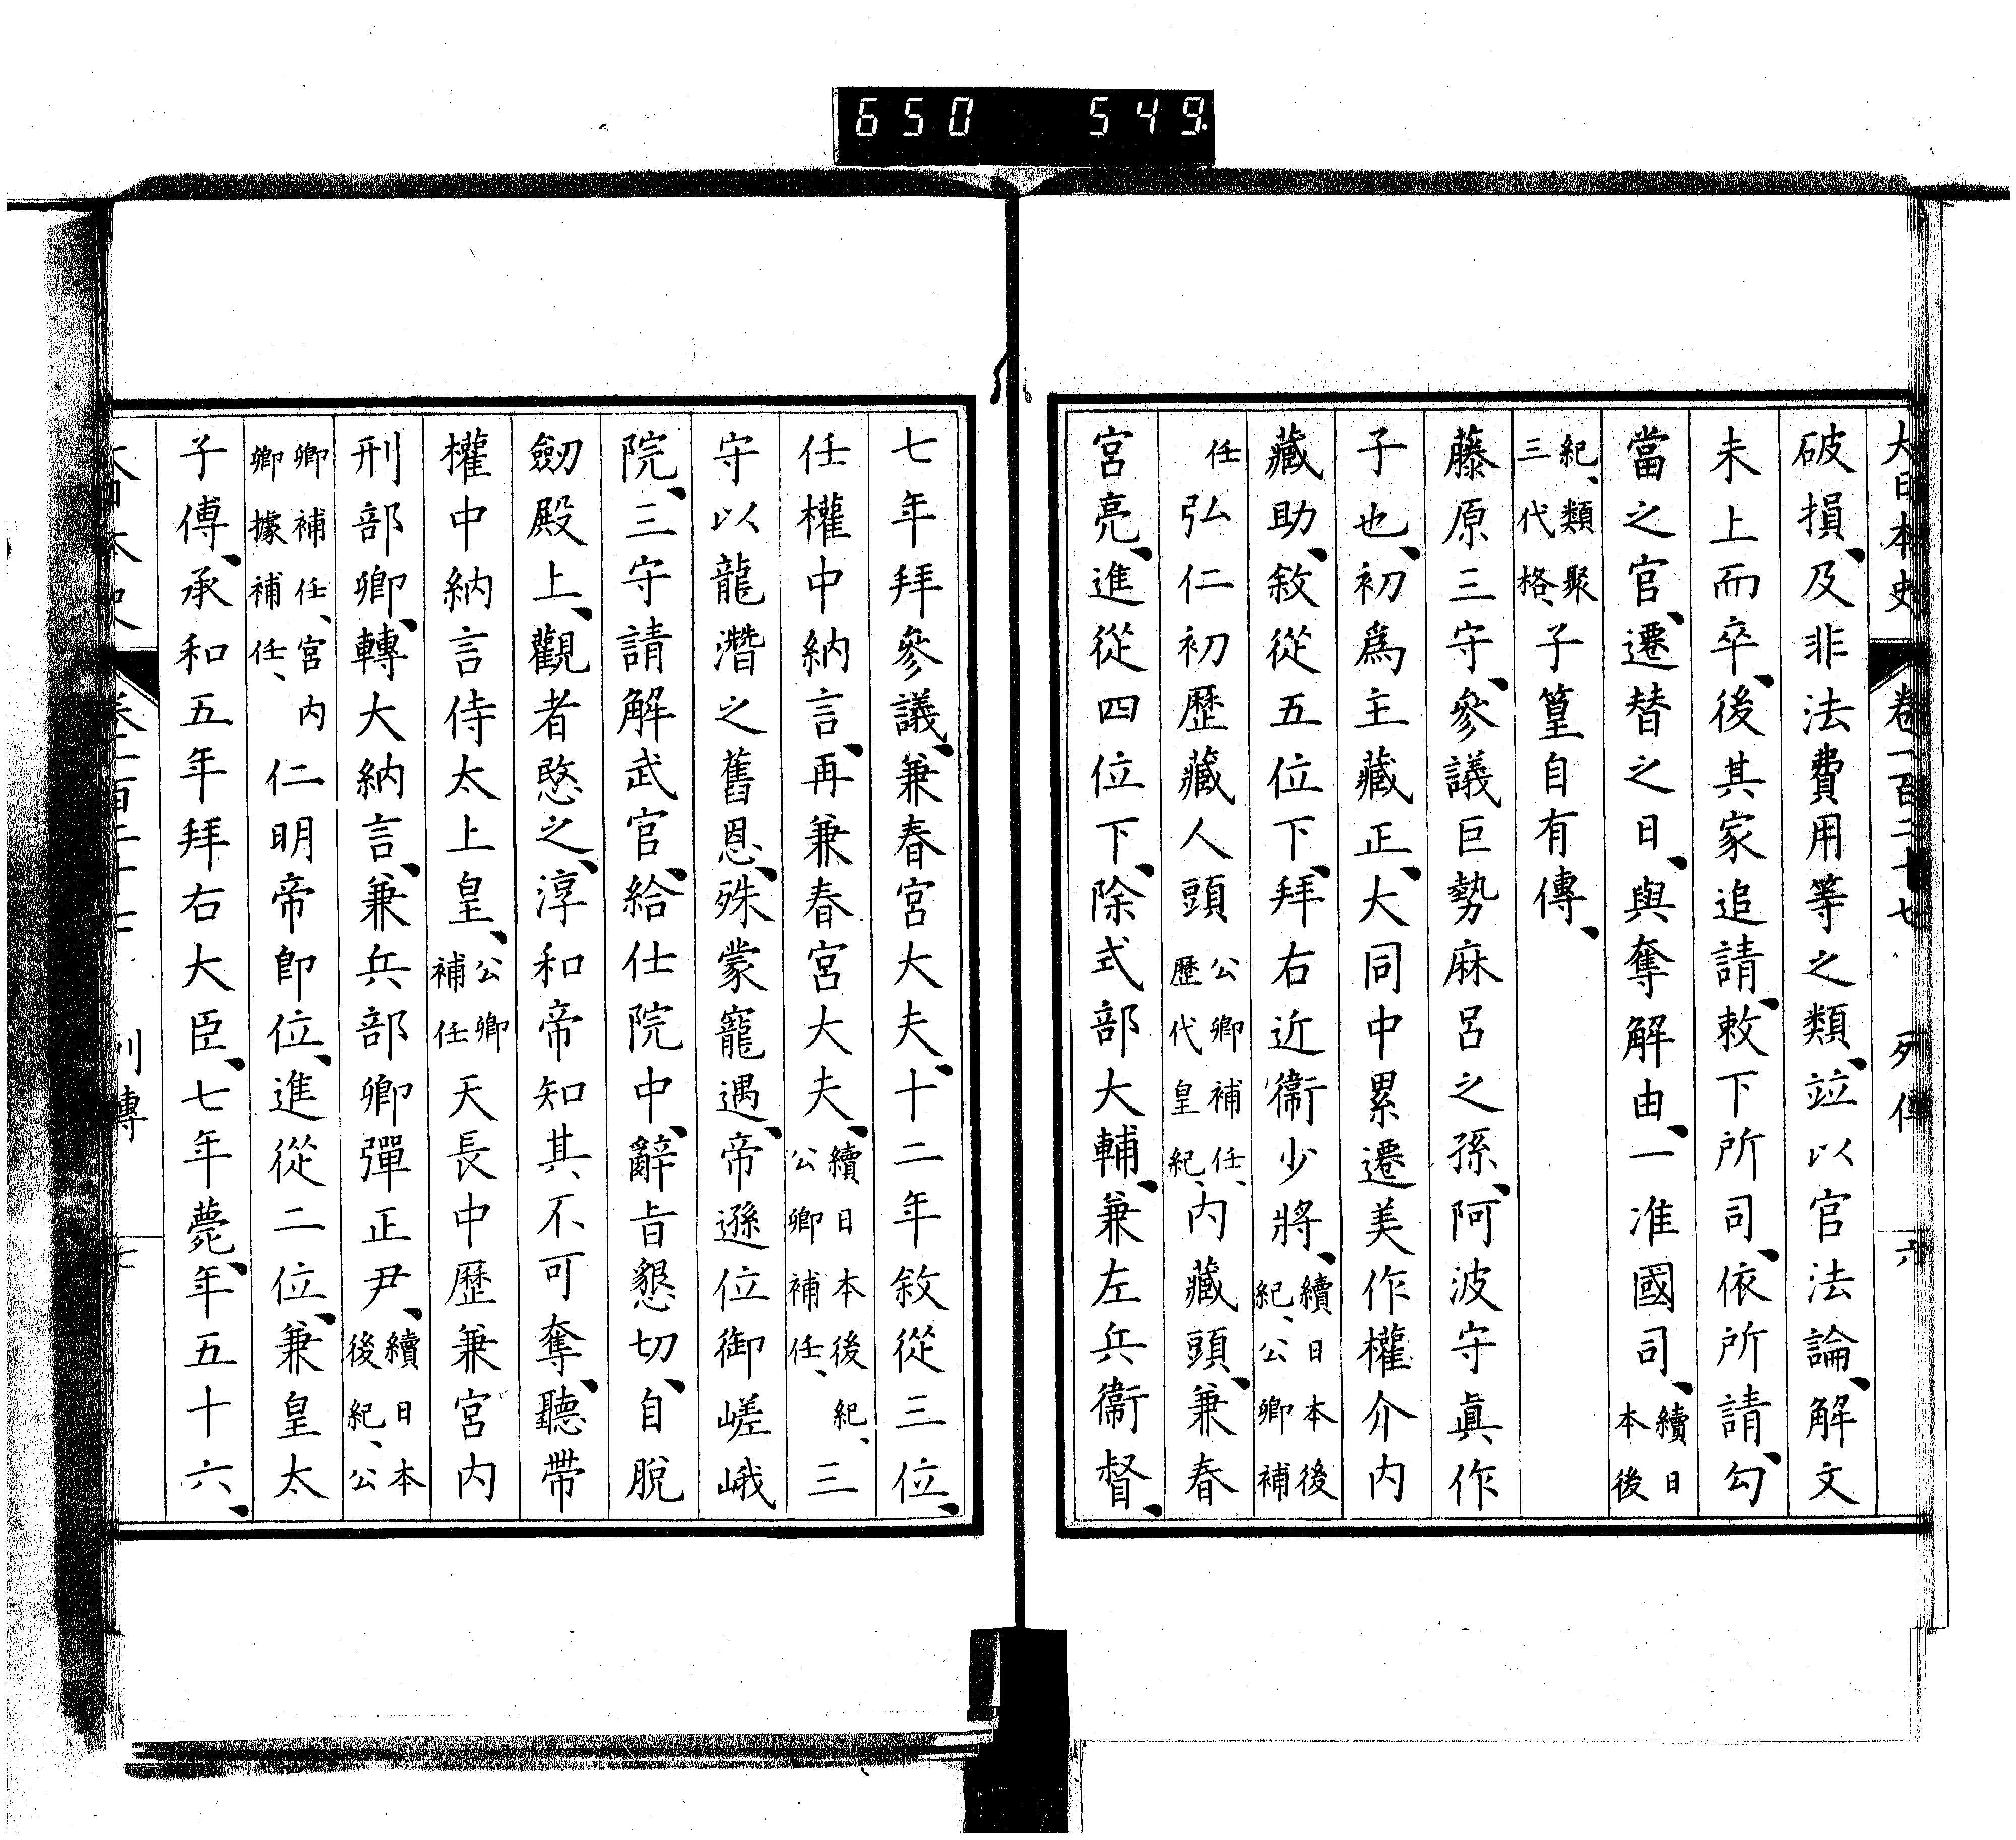 650 549
大日本史 卷一百二十七 列傳 六
破損、及非法費用等之類、竝以官法論、解文
未上而卒、後其家追請、敕下所司、依所請、勾
當之官、遷替之日、與奪解由、一准國司、續日本後
紀、類聚三代格、子篁自有傳、
藤原三守、參議巨勢麻呂之孫、阿波守眞作
子也、初爲主藏正、大同中累遷美作權介內
藏助、敘從五位下、拜右近衞少將、續日本後紀、公卿補
任弘仁初歷藏人頭公卿補任、歷代皇紀、內藏頭、兼春
宮亮、進從四位下、除式部大輔、兼左兵衞督、
七年拜參議、兼春宮大夫、十二年敘從三位、
任權中納言、再兼春宮大夫、續日本後紀、公卿補任、三
守以龍潛之舊恩、殊蒙寵遇、帝遜位御嵯峨
院、三守請解武官、給仕院中、辭旨懇切、自脫
劒殿上、觀者愍之、淳和帝知其不可奪、聽帶
權中納言侍太上皇、公卿補任天長中歷兼宮內
刑部卿、轉大納言、兼兵部卿彈正尹、續日本後紀、公
卿補任、宮內卿據補任、仁明帝卽位、進從二位、兼皇太
子傅、承和五年拜右大臣、七年薨、年五十六、
列傳